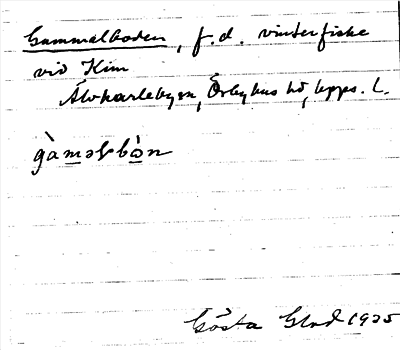 Gammalboden, f.d. vinterfiske
vid Kim
Älvkarlebyån, Örbyhus hd, Upps. l.
gàməlbòn
Gösta Glad 1925